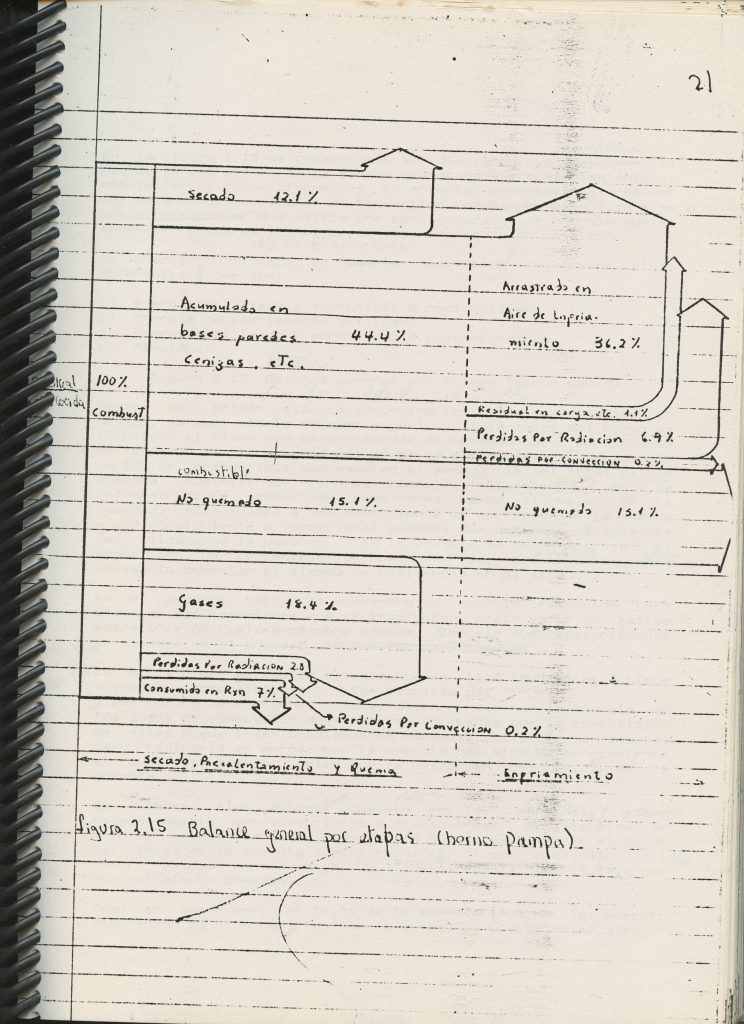 21
secado 12.1 %
Acumulado en
bases paredes 44.4 %
Cenizas, eTc.
Arrastrado en
Aire de Enfria-
miento 36.2 %
100%
combust
Residual en carga, etc. 1.1 %
Perdidas Por Radiacion 6.9 %
Perdidas por conveccion 0.2 %
combustible
No quemado 15.1 %
No quemado 15.1 %
Gases 18.4 %
Perdidas Por Radiacion 2.8
Consumido en Rxn 7 %
Perdidas Por Conveccion 0.2 %
secado, Precalentamiento y Quema
Enfriamiento
figura 2.15 Balance general por etapas (horno pampa)